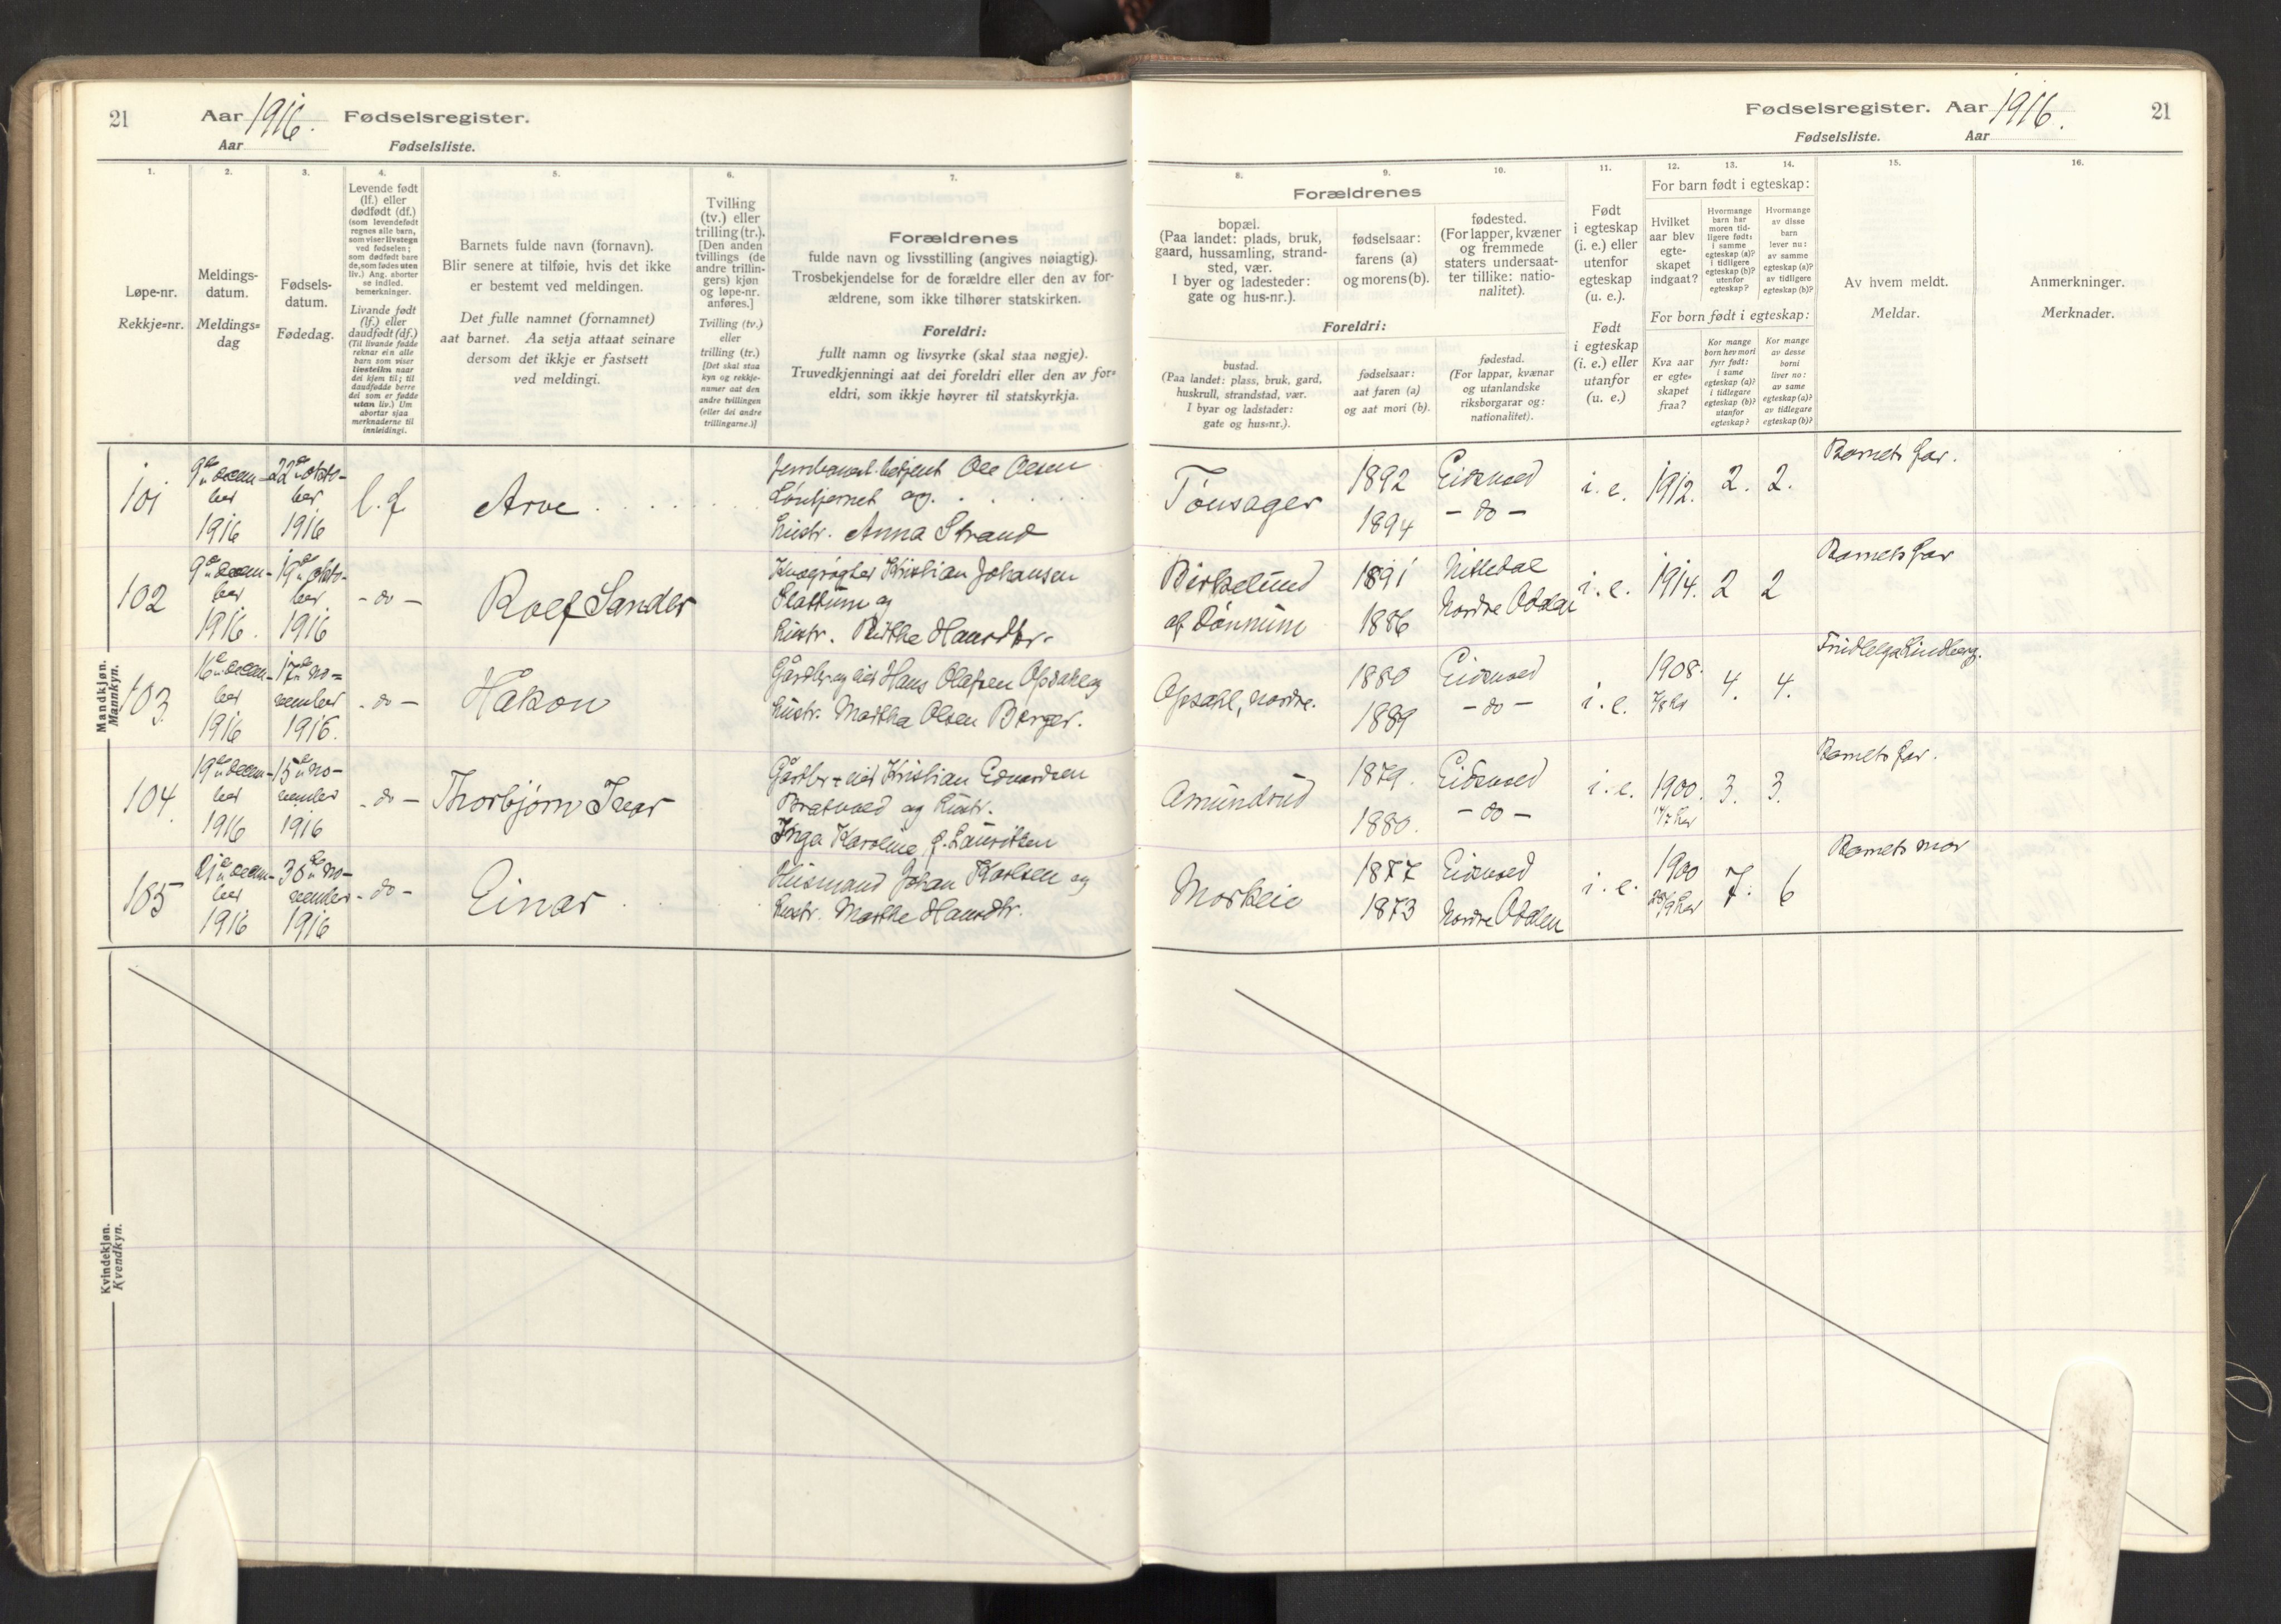 21
Aar 1916. Fødselsregister.
Aar Fødselsliste.
1.
Løpe-nr.
Rekkje=nr.
2.
Meldings-
datum.
Meldings=
dag
3.
Fødsels-
datum.
Fødedag.
4.
Levende født
(lf.) eller
dødfødt (df.)
(som levendefødt
regnes alle barn,
som viser livstegn
ved fødselen;
som dødfødt bare
de, som fødes uten
liv.) Ang. aborter
se indled.
bemerkninger.
Livande født
(lf.) eller
daudfødt (df.)
(Til livande fødde
reknar ein alle
barn som viser
livsteikn naar
dei kjem til; til
daudfødde berre
dei som er fødde
utan liv.) Um
abortar sjaa
merknaderne til
innleidingi.
5.
Barnets fulde navn (fornavn).
Blir senere at tilføie, hvis det ikke
er bestemt ved meldingen.
Det fulle namnet (fornamnet)
aat barnet. Aa setja attaat seinare
dersom det ikkje er fastsett
ved meldingi.
6.
Tvilling
(tv.) eller
trilling (tr.).
[Den anden
tvillings (de
andre trillin-
gers) kjøn
og løpe-nr.
anføres.]
Tvilling (tv.)
eller
trilling (tr.)
[Det skal staa
kyn og rekkje-
numer aat den
andre tvillingen
(eller dei andre
trillingarne.)]
7.
Forældrenes
fulde navn og livsstilling (angives nøiagtig).
Trosbekjendelse for de forældre eller den av for-
ældrene, som ikke tilhører statskirken.
Foreldri:
fullt namn og livsyrke (skal staa nøgje).
Truvedkjenningi aat dei foreldri eller den av for=
eldri, som ikkje høyrer til statskyrkja.
Mandkjøn.
Mannkyn.
101
9de decem-
ber
1916
22de okto-
ber
1916
l. f
Arve
Jernbanebetjent Ole Olsen
og
hustr. Anna Strand
102
9de decem-
ber
1916.
19de okto-
ber
1916
- do -
Rolf Sander
Kristian Johansen
Slattum og
hustr. Berthe Hansdtr.
103.
16de decem-
ber
1916
17de no=
vember
1916.
- do -
Hakon
Gårdbr. og eier Hans Olafsen Opsahl og
hustr. Martha Olsen Berger.
104.
19de decem-
ber
1916
15de no-
vember
1916
- do -
Thorbjørn Ivar
Gårdbr - eier Kristian Edvardsen
Bratvold og hustr.
Inga Karoline f. Lauritsen
105
21de decem-
ber
1916
30de no-
vember
1916
- do -
Einar
Husmand Johan Karlsen og
hustr. Marthe Hansdtr.
Kvindekjøn.
Kvendkyn.
Fødselsregister. Aar 1916. 21
Fødselsliste. Aar
8.
Forældrenes
bopæl.
(Paa landet: plads, bruk,
gaard, hussamling, strand-
sted, vær.
I byer og ladesteder:
gate og hus-nr.).
Foreldri:
bustad.
(Paa landet: plass, bruk, gard,
huskrull, strandstad, vær.
I byar og ladstader:
gate og hus=nr.).
9.
fødselsaar:
farens (a)
og morens (b).
fødselsaar:
aat faren (a)
og aat mori (b).
10.
fødested.
(For lapper, kvæner
og fremmede
staters undersaat-
ter tillike: natio-
nalitet).
fødestad.
(For lappar, kvænar
og utanlandske
riksborgarar og:
nationalitet).
11.
Født
i egteskap
(i. e.) eller
utenfor
egteskap
(u. e.).
Født
i egteskap
(i. e.) eller
utanfor
(u. e.)
12. 13. 14.
For barn født i egteskap:
Hvilket
aar blev
egte-
skapet
indgaat?
Hvormange
barn har
moren tid-
ligere født:
i samme
egteskap (a)?
i tidligere
egteskap (b)?
utenfor
egteskap?
Hvormange
av disse
barn
lever nu:
av samme
egteskap (a)?
av tidligere
egteskap (b)?
For born født i egteskap:
Kva aar
er egte=
skapet
fraa?
Kor mange
born hev mori
fyrr født:
i same
egteskap (a)?
i tidlegare
egteskap (b)?
utanfor
egteskap?
Kor mange
av desse
borni
liver no:
av same
egteskap (a)?
av tidlegare
egteskap (b)?
15.
Av hvem meldt.
Meldar.
16.
Anmerkninger.
Merknader.
Tønsager
1892
1894
Eidsvold
- do -
i. e.
1912.
2.
2.
Barnets far.
Birkelund
af Dønnum
1891
1886
Nittedal
Nordre Odalen
i. e.
1914.
2
2
Barnets far
Opsahl, nordre.
1880
1889
Eidsvold
- do -
i. e.
1908.
4.
4.
Frøid Helga Lindberg.
Amundrud
1879.
1880.
Eidsvold
- do -
i. e.
1900.
3.
3.
Barnets far.
Morkeie
1877
1873
Eidsvold
Nordre Odalen
i. e.
1900
7.
6
Barnets mor